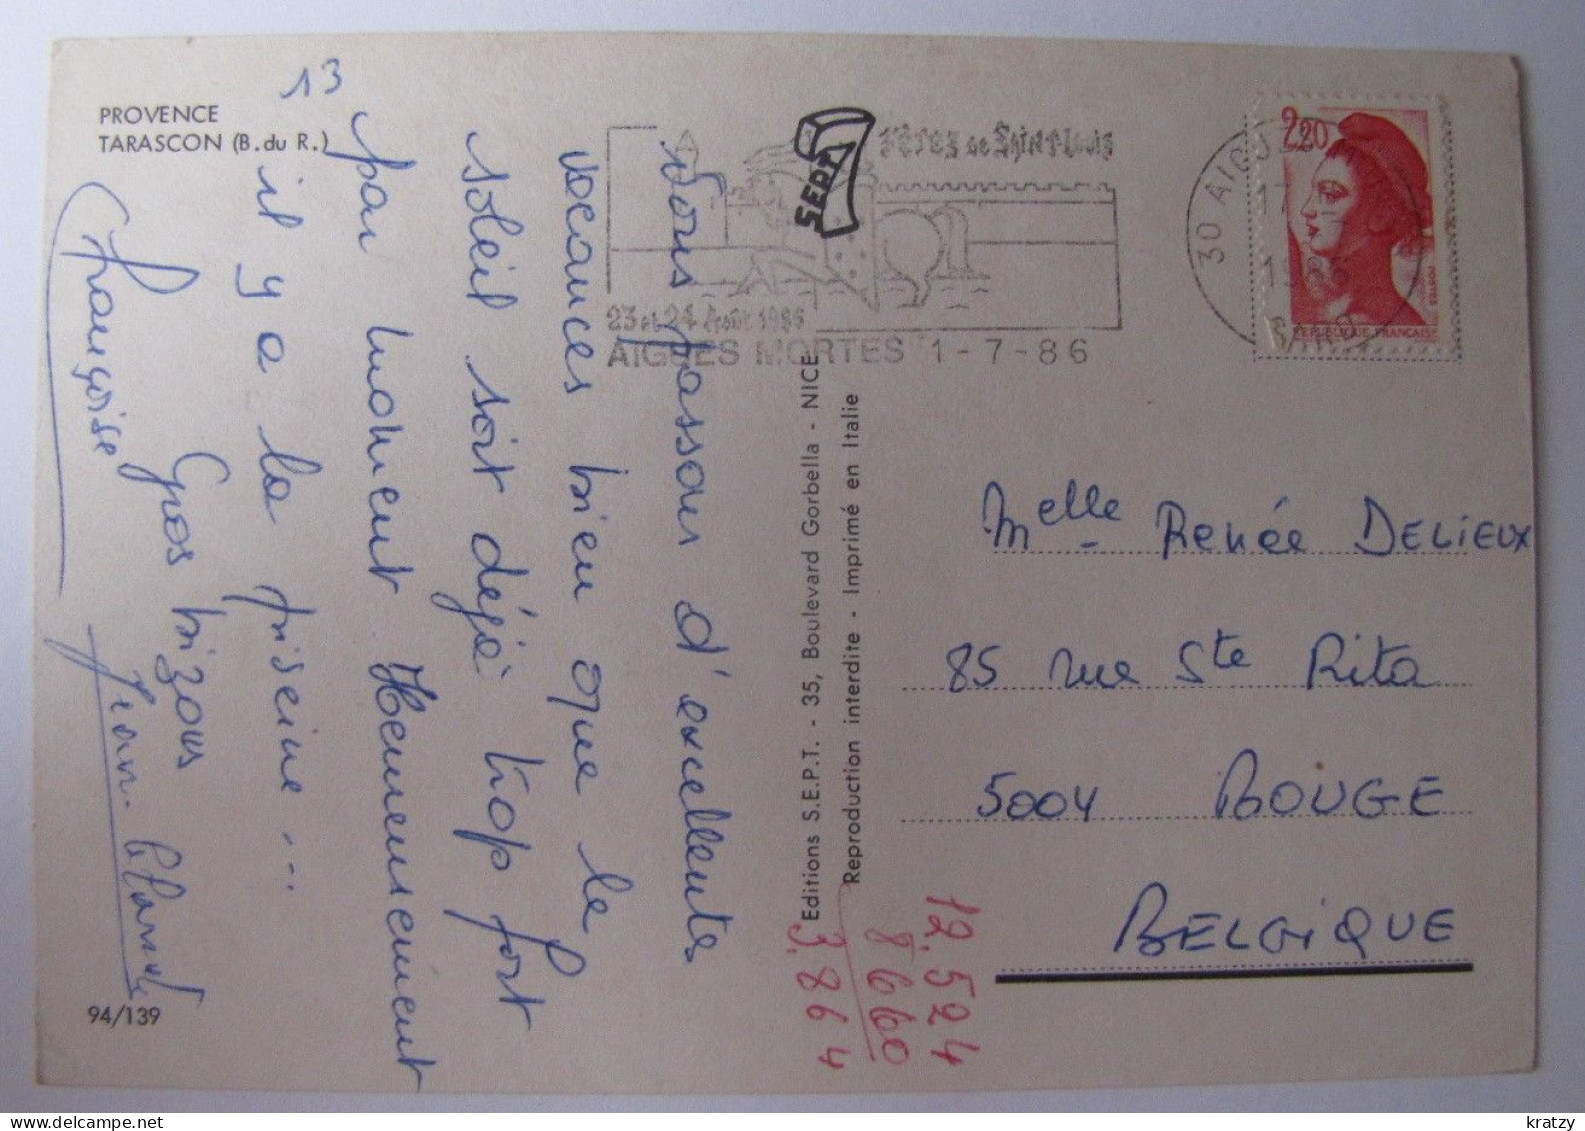 PROVENCE
TARASCON (B. du R.)
13
Nous passons d'excellentes
vacances bien que le
soleil soit déjà trop fort
par moment Heureusement
il y a la piscine ...
Gros bizous
Françoise
Jean-
94/139
SEPT
Editions S.E.P.T. - 35, Boulevard Gorbella - NICE
Reproduction interdite - Imprimé en Italie
FÊTES de Saint Louis
23 et 24 Août 1986
AIGUES MORTES 1-7-86
30 AIGU
17
1986
GARD
2,20
POSTES
REPUBLIQUE FRANÇAISE
Melle Renée DELIEUX
85 rue Ste Rita
5004 BOUGE
BELGIQUE
12,524
8 660
3,864
kratzy
delcampe.net